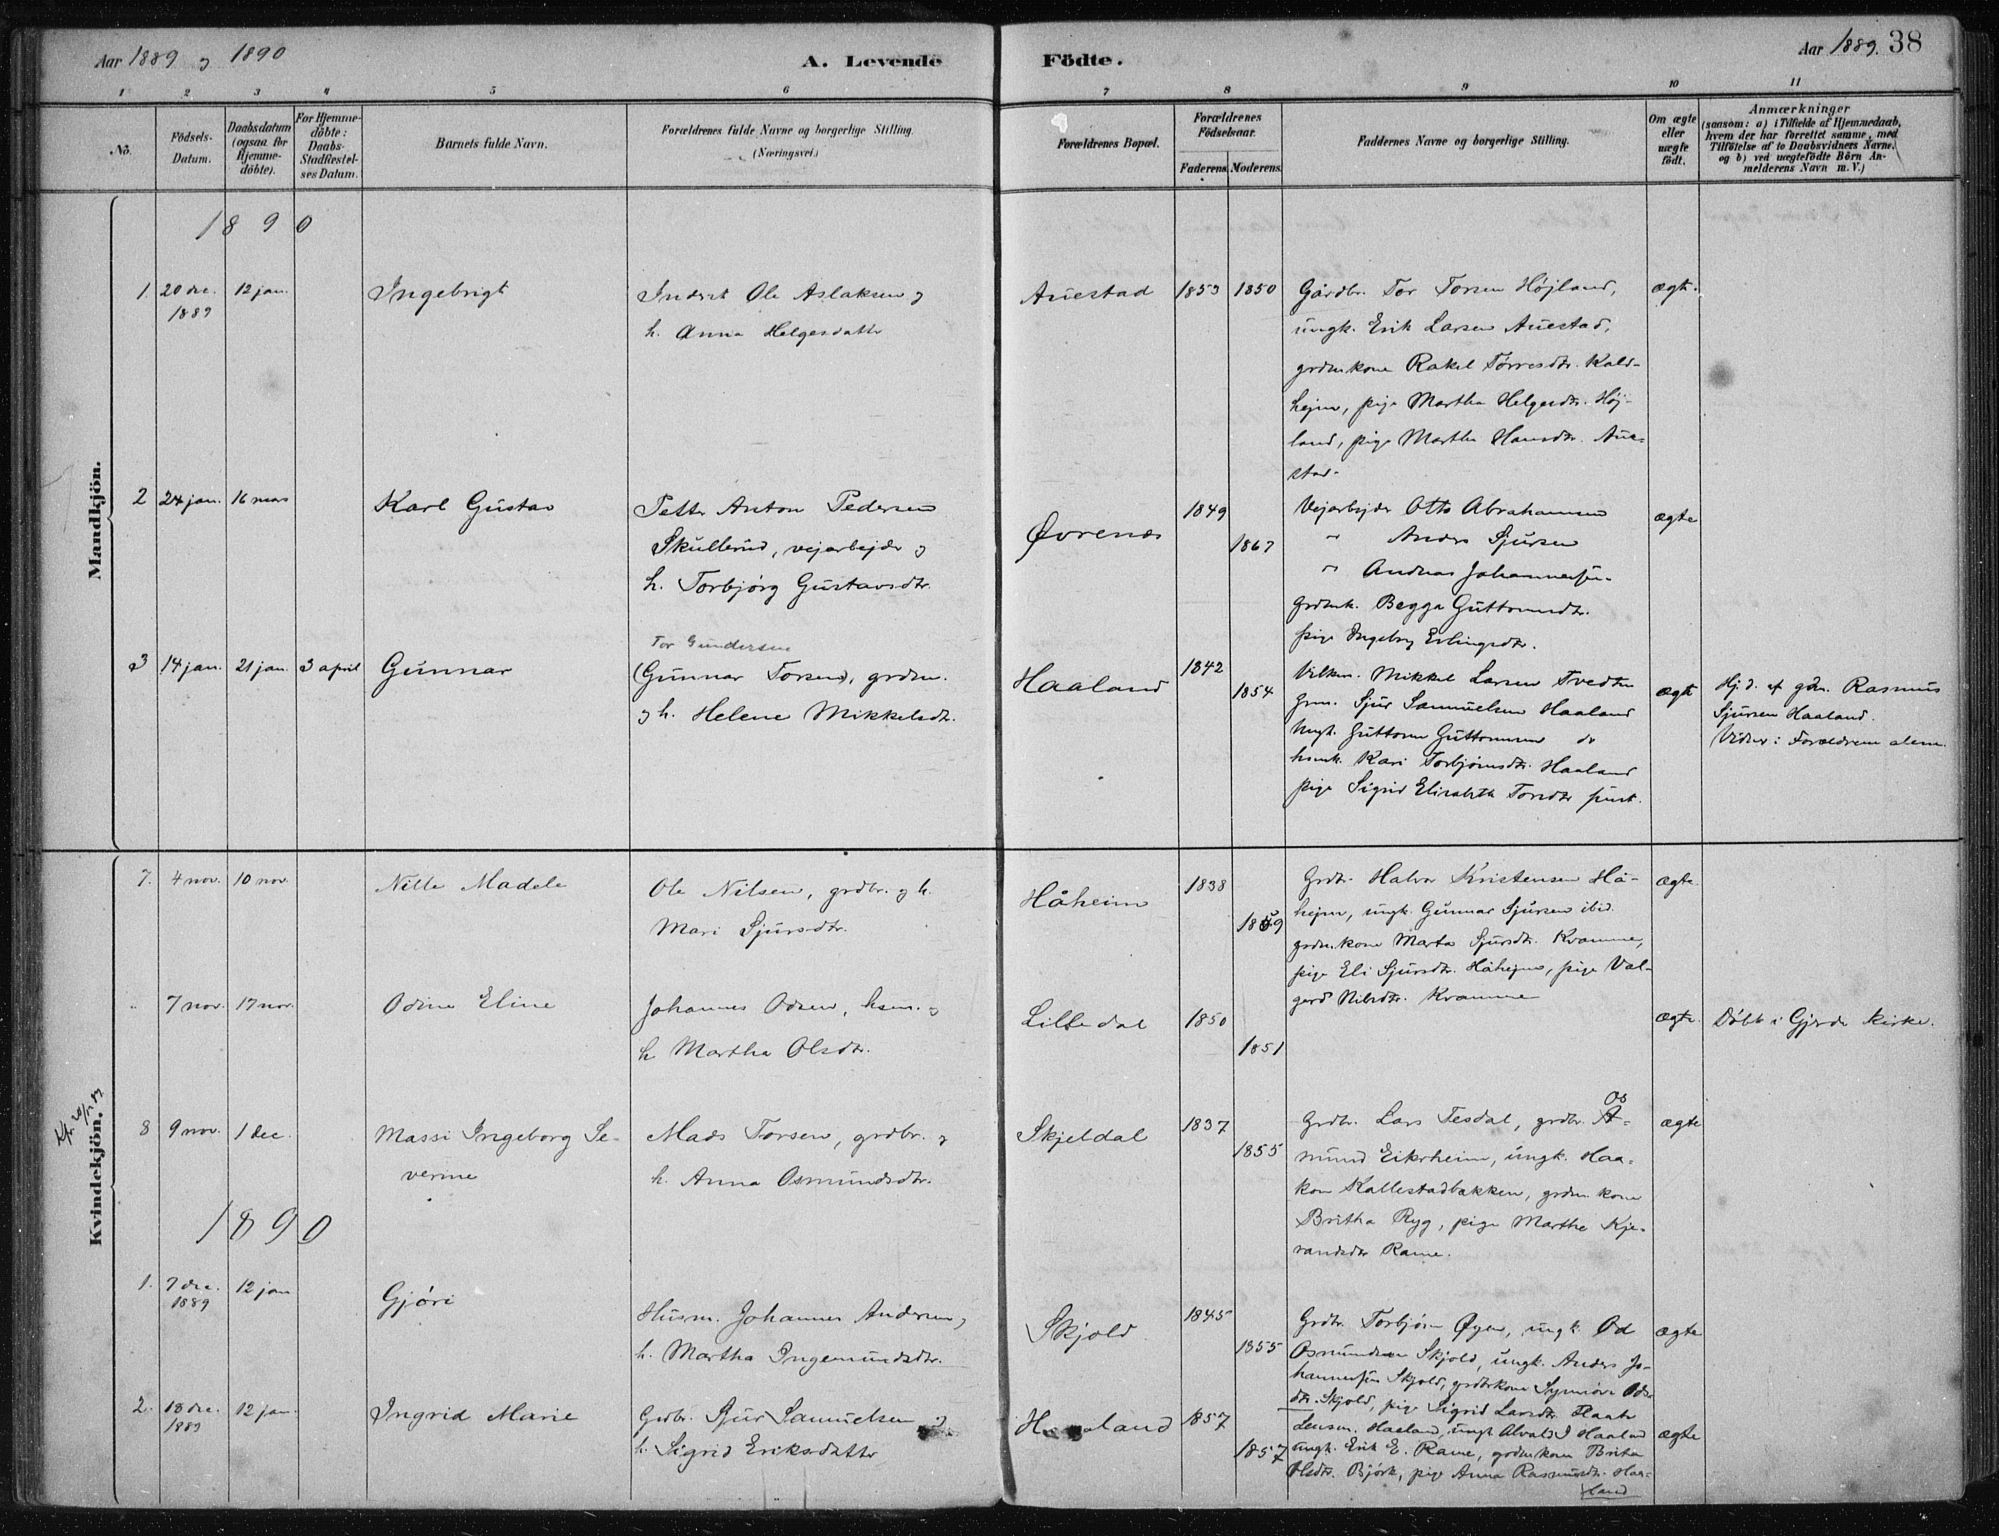 Aar 1889 og 1890
A. Levende Födte.
Aar 1889. 38
1 2 3 4 5 6 7 8 9 10 11
No.
Födsels-Datum.
Daabsdatum (ogsaa for Hjemmedöbte).
For Hjemmedöbte: Daabs-Stadfæstelses Datum.
Barnets fulde Navn.
Forældrenes fulde Navne og borgerlige Stilling. (Næringsvei.)
Forældrenes Bopæl.
Forældrenes Födselsaar.
Faderens. Moderens.
Faddernes Navne og borgerlige Stilling.
Om ægte eller uægte födt.
Anmærkninger
(saasom: a) i Tilfælde af Hjemmedaab, hvem der har forrettet samme, med Tilföielse af to Daabsvidners Navne, og b) ved uægtefödte Börn Anmelderens Navn m. V.)
Mandkjön.
1890
1. 20 dec. 1889 12 jan. Ingebrigt
Inderst Ole Aslaksen og
h. Anna Helgesdatter
Auestad 1853 1850
Gårdbr. Tor Torsen Højland,
ungk. Erik Larsen Auestad,
grdmkone Rakel Tørresdtr. Kald-
hejm, pige Martha Helgesdtr. Høj-
land, pige Martha Hansdtr. Aue-
stad.
ægte.
2 24 jan. 16 mars Karl Gustav
Petter Anton Pedersen
Skullerud, vejarbejder og
h. Torbjørg Gustavsdtr.
Øvrenes 1849 1867
Vejarbejder Otto Abrahamsen
" Anders Sjursen
" Andreas Johannessen
Grdmk. Begga Guttormsdtr.
pige Ingeborg Erlingsdtr.
ægte
3 14 jan. 21 jan. 3 april Gunnar
Tor Gundersen
(Gunnar Torsen), grdm.
og h. Helene Mikkelsdtr.
Haaland 1842 1854
Mikkel Larsen Tvedten
grm. Sjur Samuelsen Haaland
Ungk. Guttorm Guttormsen do
hsmk. Kari Torbjørnsdtr. Haaland
pige Sigrid Elisabeth Torsdtr
ægte
Hj.d. af gdm. Rasmus
Sjursen Haaland.
Vidner: Forældrene alene.
Kvindekjön.
7. 4 nov. 10 nov. Nille Madele
Ole Nilsen, grdbr. og h.
Mari Sjursdtr.
Håheim 1838 1859
Grdbr. Halvor Kristensen Hå-
hejm, ungk. Gunnar Sjursen ibid.
grdmkone Marta Sjursdtr. Kvamme,
pige Eli Sjursdtr. Håhejm, pige Val-
gerd Nilsdtr. Kvamme
ægte.
" 7 nov. 17 nov. Odine Eline
Johannes Odsen, hsm. og
h Martha Olsdtr.
Lilledal 1850 1851
ægte. Døbt i Gjerde kirke.
8 9 nov. 1 dec. Massi Ingeborg Se-
verine
Mads Torsen, grdbr. og
h. Anna Osmundsdtr.
Skjeldal 1837 1855
Os
Grdbr. Lars Tesdal, grdbr. A-
mund Eikrheim, ungk. Haa-
kon Kallestadbakken, grdmkone
Britha Ryg, pige Marthe Kje-
randsdtr Rame.
ægte
1890
1. 7 dec. 1889 12 jan Gjøri
Husm. Johannes Andersen og
h. Martha Ingemundsdtr.
Skjold 1845 1855
Grdbr. Torbjørn Øyen, ungk. Od
Osmundsen Skjold, ungk. Anders Jo-
hannessen Skjold, grdbrkone Synnøve Ods-
dtr. Skjold, pige Sigrid Larsdtr.
ægte
2. 13 dec. 1889 12 jan. Ingrid Marie
Grdbr. Sjur Samuelsen og
h. Sigrid Eriksdatter
Haaland 1857 1857
Lensm. Haaland, ungk Alvald J Haaland
ungk. Erik E. Rame, grdmkone Britha
Olsdtr. Bjørk, pige Anna Rasmusdtr. Haa-
land
ægte